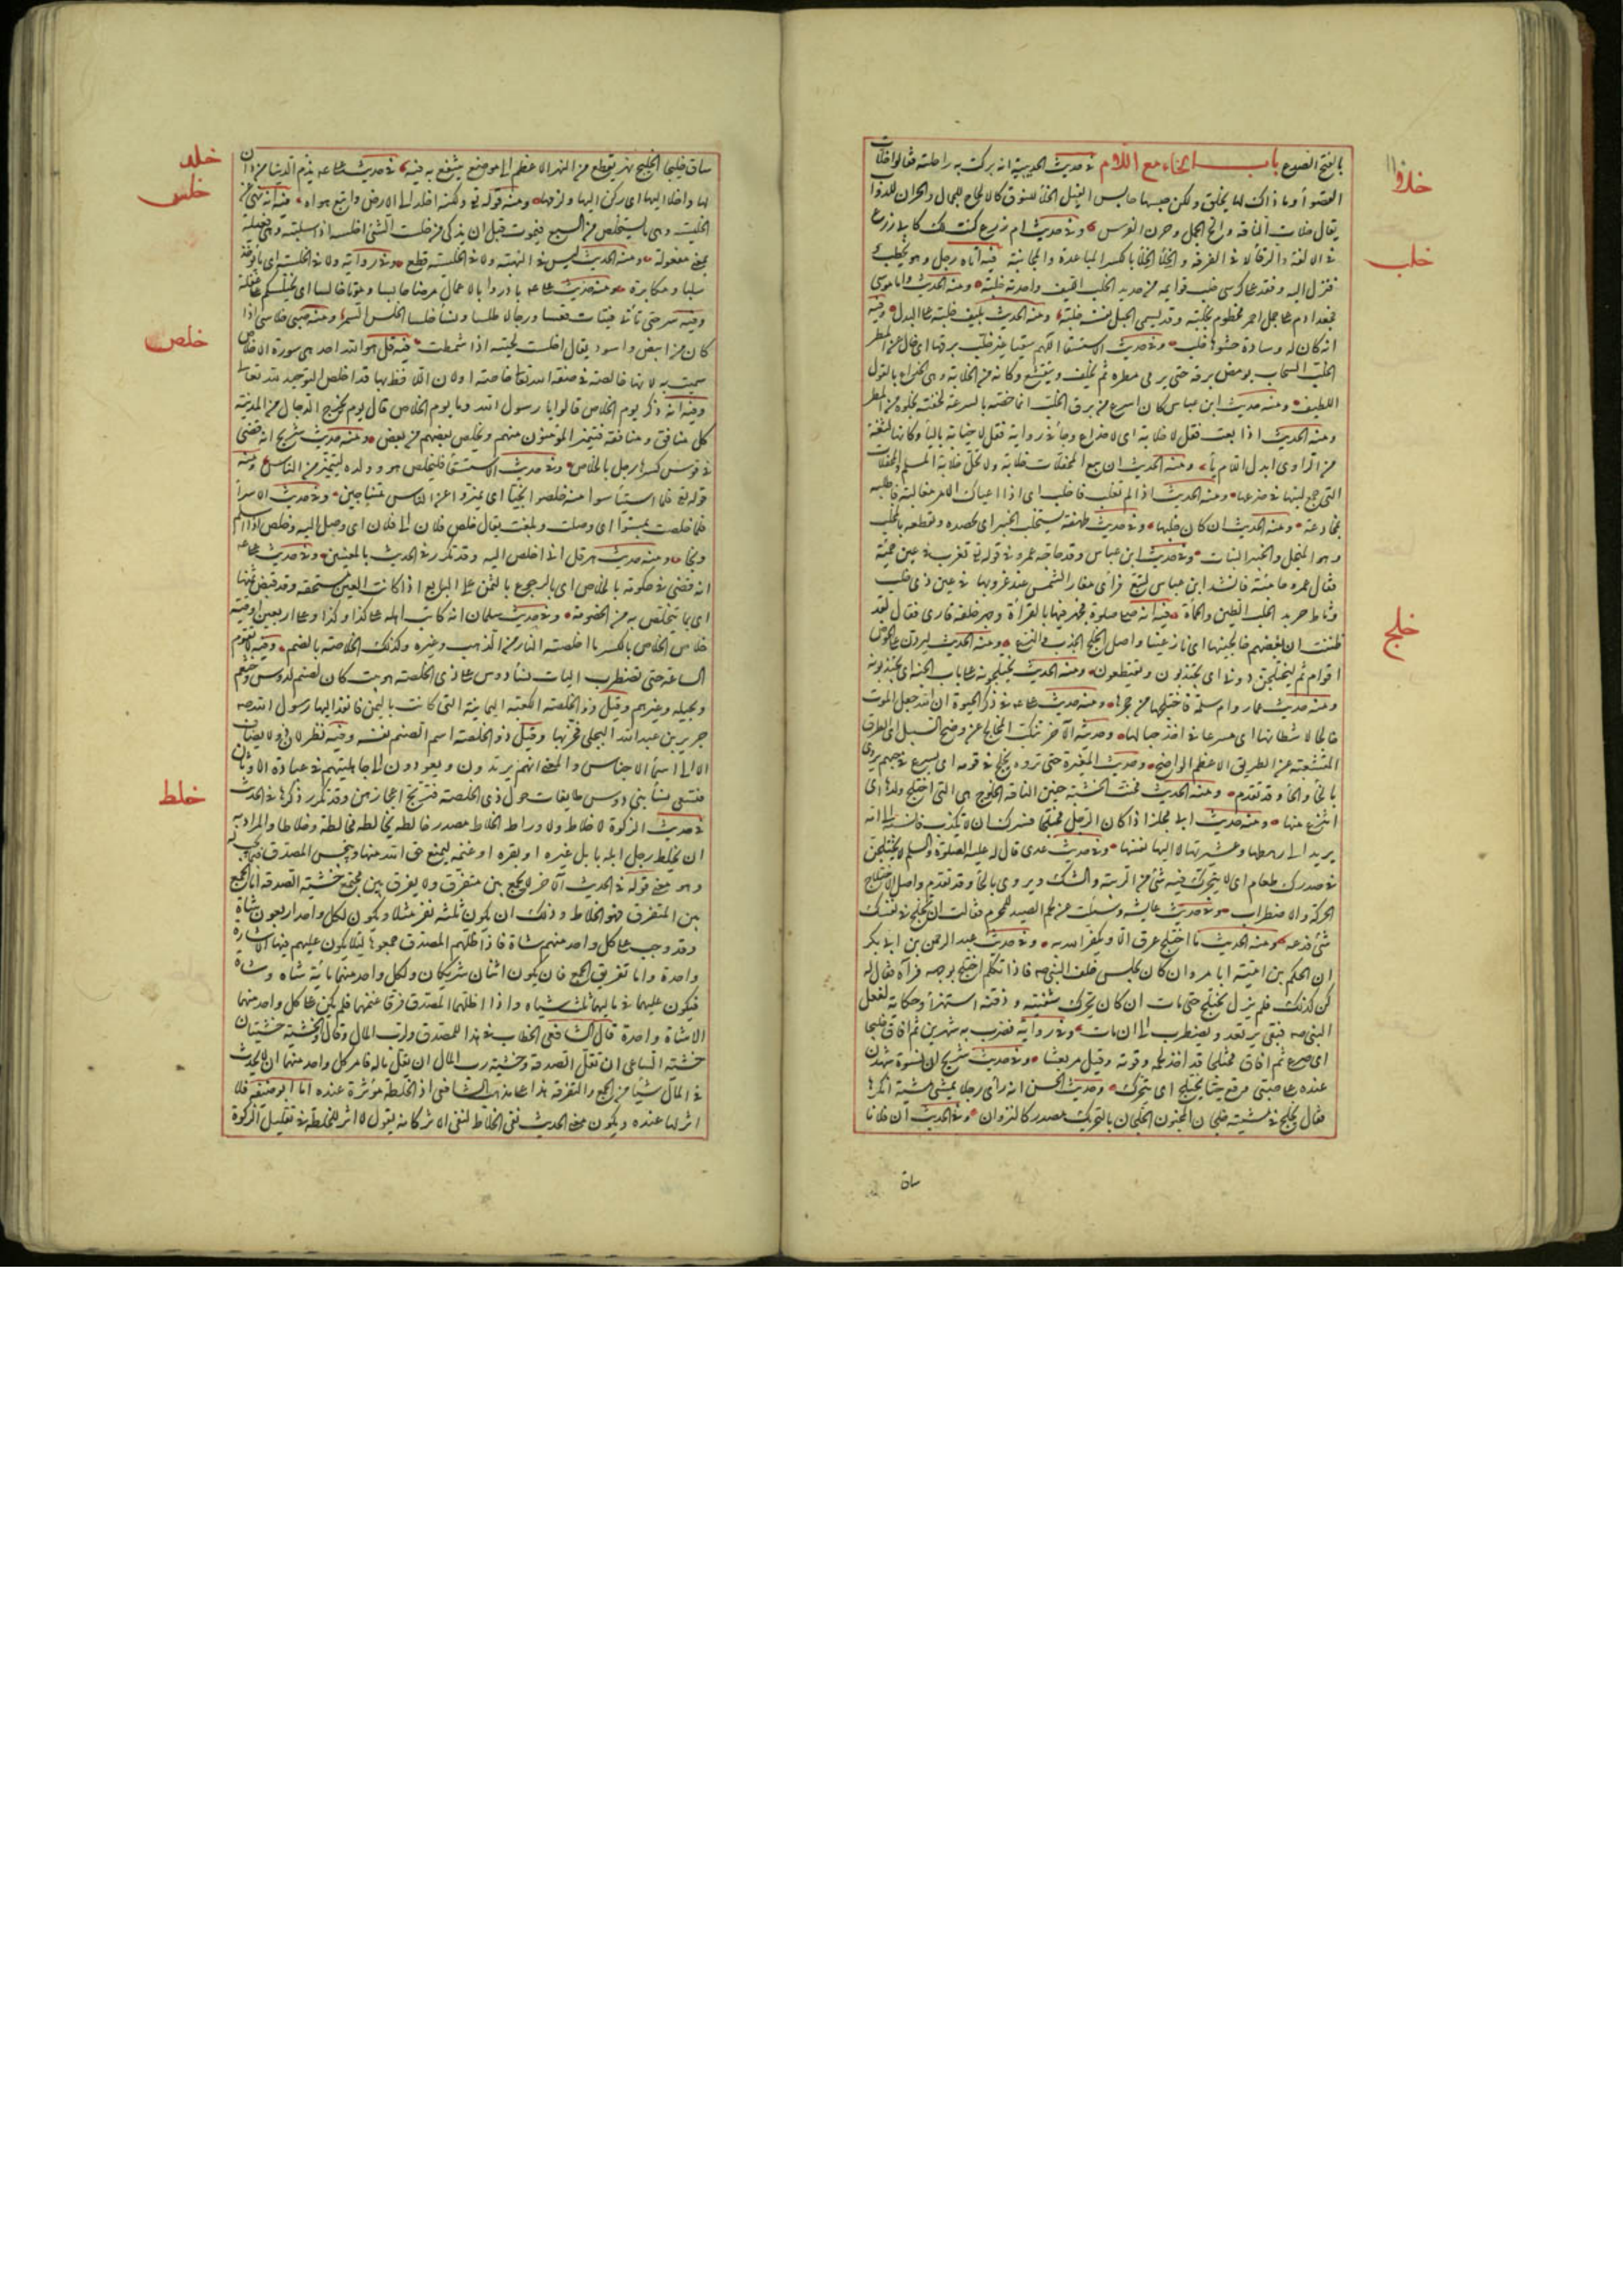 بالفتح الضوء باب الخاء مع اللام في حديث الحديبية انه بركت به راحلته فقالوا خلأت
القصواء وما ذاك لها بخلق ولكن حبسها حابس الفيل الخلأ للنوق كالالحاح للجمال والحران للدواب
يقال خلأت الناقة والح الجمل وحرن الفرس وفي حديث ام زرع كنت لك كابي زرع
في الالفة والرفاء لا في الفرقة والخلاء الخلاء بالكسر المباعدة والمجانبة فيه اتاه رجل وهو يخطب
فنزل اليه وقعد على كرسي خلب قوايمه من حديد الخلب الليف واحدته خلبة ومنه الحديث واما موسى
فجعد ادم على جمل احمر مخطوم بخلبة وقد يسمى الحبل نفسه خلبة ومنه الحديث بليف خلبة على البدل وفيه
انه كان له وسادة حشوها خلب وفي حديث الاستسقا اللهم سقيا غير خلب برقها اي خال عن المطر
الخلب السحاب يومض برقه حتى يرجى مطره ثم يخلف ويتقشع وكانه من الخلابة وهي الخداع بالقول
اللطيف ومنه حديث ابن عباس كان اسرع من برق الخلب انما خصه بالسرعة لخفته بخلوه من المطر
ومنه الحديث اذا بعت فقل لا خلابة اي لا خداع وجاء في رواية فقل لا خيابة بالياء وكانها لثغة
من الراوي ابدل اللام ياء ومنه الحديث ان بيع المحفلات خلابة ولا تحل خلابة المسلم والمحفلات
التي جمع لبنها في ضرعها ومنه الحديث اذا لم تغلب فاخلب اي اذا اعياك الامر مغالبة فاطلبه
مخادعة ومنه الحديث ان كان خلبها وفي حديث طهفة نستخلب الخبير اي نحصده ونقطعه بالمخلب
وهو المنجل والخبير النبات وفي حديث ابن عباس وقد حاجه عمرو في قوله تع تغرب في عين حمئة
فقال عمرو حامئة فانشد ابن عباس لتبع فراى مغار الشمس عند غروبها في عين ذي خلب
وثاط حرمد الخلب الطين والحمأة فيه انه صلى صلوة فجهر فيها بالقراءة وجهر خلفه قارئ فقال لقد
ظننت ان بعضهم خالجنيها اي نازعنيها واصل الخلج الجذب والنزع ومنه الحديث ليردن علي الحوض
اقوام ثم ليختلجن دوني اي يجتذبون ويقتطعون ومنه الحديث يختلجونه على باب الجنة اي يجتذبونه
ومنه حديث عمار وام سلمة فاختلجها من حجرها ومنه حديث علي في ذكر الحيوة ان الله جعل الموت
خالجا لاشطانها اي مسرعا في اخذ حبالها وحديثه الآخر تنكب المخالج عن وضح السبيل اي الطرق
المتشعبة عن الطريق الاعظم الواضح وحديث المغيرة حتى تروه يخلج في قومه اي يسرع في حبهم يروى
بالخاء والحاء وقد تقدم ومنه الحديث فحنت الخشبة حنين الناقة الخلوج هي التي اختلج ولدها اي
انتزع منها ومنه حديث ابي مجلز اذا كان الرجل مختلجا فسرك ان لا تكذب فانسبه الى امه
يريد الى رهطها وعشيرتها لا اليها نفسها وفي حديث عدي قال له عليه الصلوة والسلم لا يختلجن
في صدرك طعام اي لا يتحرك فيه شيء من الريبة والشك ويروى بالحاء وقد تقدم واصل الاختلاج
الحركة والاضطراب وفي حديث عايشة وسئلت عن لحم الصيد للمحرم فقالت ان تخلج في نفسك
شيء فدعه ومنه الحديث ما اختلج عرق الا ويكفر الله به وفي حديث عبد الرحمن بن ابي بكر
ان الحكم بن امية ابا مروان كان يجلس خلف النبي صه فاذا تكلم اختلج بوجهه فرآه فقال له
كن كذلك فلم يزل يختلج حتى مات ان كان يحرك شفتيه وذقنه استهزاء وحكاية لفعل
النبي صه فبقي يرتعد ويضطرب الى ان مات وفي رواية فضرب به شهرين ثم افاق خليجا
اي صرع ثم افاق مختلجا قد اخذ لحمه وقوته وقيل مرتعشا وفي حديث شريح ان نسوة شهدن
عنده على صبي وقع حيا يختلج اي يتحرك وحديث الحسن انه راى رجلا يمشي مشية انكرها
فقال يخلج في مشيته خلجان المجنون الخلجان بالتحريك مصدر كالنزوان وفي الحديث ان فلانا
ساق
خلأ
خلب
خلج
ساق خليجا الخليج نهر يقتطع من النهر الاعظم الى موضع ينتفع به فيه في حديث علي يذم الدنيا من دان
لها واخلد اليها اي ركن اليها ولزمها ومنه قوله تع ولكنه اخلد الى الارض واتبع هواه فيه انه نهى عن
الخليسة وهي ما يستخلص من السبع فيموت قبل ان يذكى من خلست الشيء اختلسه اذا سلبته وهي فعيلة
بمعنى مفعولة ومنه الحديث ليس في النهبة ولا في الخلسة قطع وفي رواية ولا في الخلسة اي ما يؤخذ
سلبا ومكابرة ومنه حديث علي بادروا بالاعمال مرضا حابسا وموتا خالسا اي يختلسكم على غفلة
وفيه سر حتى تأتي فتيات قعسا ورجالا طلسا ونساء خلسا الخلس السمر ومنه صبي خلاسي اذا
كان من ابيض واسود يقال اخلست لحيته اذا شمطت فيه قل هو الله احد هي سورة الاخلاص
سميت به لانها خالصة في صفة الله تعالى خاصة او لان اللافظ بها قد اخلص التوحيد لله تعالى
وفيه انه ذكر يوم الخلاص قالوا يا رسول الله وما يوم الخلاص قال يوم يخرج الدجال من المدينة
كل منافق ومنافقة فيتميز المؤمنون منهم ويخلص بعضهم من بعض ومنه حديث شريح انه قضى
في قوس كسرا رجل بالخلاص وفي حديث الاستسقاء فليخلص هو وولده ليتميز من الناس ومنه
قوله تع فلما استياسوا منه خلصوا نجيا اي تميزوا عن الناس متناجين وفي حديث الاسراء
فلما خلصت بمستوى اي وصلت وبلغت يقال خلص فلان الى فلان اي وصل اليه وخلص اذا سلم
ونجا ومنه حديث هرقل اني اخلص اليه وقد تكرر في الحديث بالمعنيين وفي حديث علي
انه قضى في حكومة بالخلاص اي بالرجوع بالثمن على البايع اذا كانت العين مستحقة وقد قبض ثمنها
اي بما يتخلص به من الخصومة وفي حديث سلمان انه كاتب اهله على كذا وكذا وعلى اربعين اوقية
خلاص الخلاص بالكسر ما اخلصته النار من الذهب وغيره وكذلك الخلاصة بالضم وفيه لا تقوم
الساعة حتى تضطرب اليات نساء دوس على ذي الخلصة هو بيت كان لصنم لدوس وخثعم
وبجيلة وغيرهم وقيل ذو الخلصة الكعبة اليمانية التي كانت باليمن فانفذ اليها رسول الله صه
جرير بن عبد الله البجلي فخربها وقيل ذو الخلصة اسم الصنم نفسه وفيه نظر لان ذو لا يضاف
الا الى اسماء الاجناس والمعنى انهم يرتدون ويعودون الى جاهليتهم في عبادة الاوثان
فتسعى نساء بني دوس طايفات حول ذي الخلصة فترتج اعجازهن وقد تكرر ذكرها في الحديث
في حديث الزكوة لا خلاط ولا وراط الخلاط مصدر خالطه يخالطه مخالطة وخلاطا والمراد به
ان يخلط رجل ابله بابل غيره او بقره او غنمه ليمنع حق الله منها ويبخس المصدق فيما يجب له
وهو معنى قوله في الحديث الآخر لا يجمع بين متفرق ولا يفرق بين مجتمع خشية الصدقة اما الجمع
بين المتفرق فهو الخلاط وذلك ان يكون ثلثة نفر مثلا ويكون لكل واحد اربعون شاة
وقد وجب على كل واحد منهم شاة فاذا اظلهم المصدق جمعوها ليلا يكون عليهم فيها الا شاة
واحدة واما تفريق الجمع فان يكون اثنان شريكان ولكل واحد منهما ماية شاه وشاه
فيكون عليهما في ماليهما ثلث شياه واذا اظلهما المصدق فرقا غنمهما فلم يكن على كل واحد منهما
الا شاة واحدة قال الشافعي الخطاب في هذا للمصدق ولرب المال وقال والخشية خشيتان
خشية الساعي ان تقل الصدقة وخشية رب المال ان يقل ماله فامر كل واحد منهما ان لا يحدث
في المال شيأ من الجمع والتفرقة هذا على مذهب الشافعي اذ الخلطة مؤثرة عنده اما ابو حنيفة فلا
اثر لها عنده ويكون معنى الحديث نفي الخلاط لنفي الاثر كانه يقول لا اثر للخلطة في تقليل الزكوة
خلد
خلس
خلص
خلط